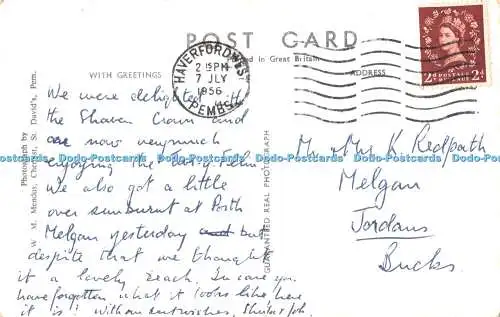 POST CARD
Printed in Great Britain
WITH GREETINGS
ADDRESS
HAVERFORDWEST
2 15PM
7 JLY
1956
PEMBS
POSTAGE
2d 2d
We were delighted with
the Shaven Crown and
are now very much
enjoying the
We also got a little
over sunburnt at Porth
Melgan yesterday but
despite that we thought
it a lovely beach. In case you
have forgotten what it looks like here
it is! With our best wishes,
Mr & Mrs K. Redpath
Melgan
Jordans
Bucks
Photograph by
W. M. Mendus, Chemist, St. David's, Pem.
GUARANTEED REAL PHOTOGRAPH
Dodo-Postcards Dodo-Postcards Dodo-Postcards Dodo-Postcards Dodo-Postcards